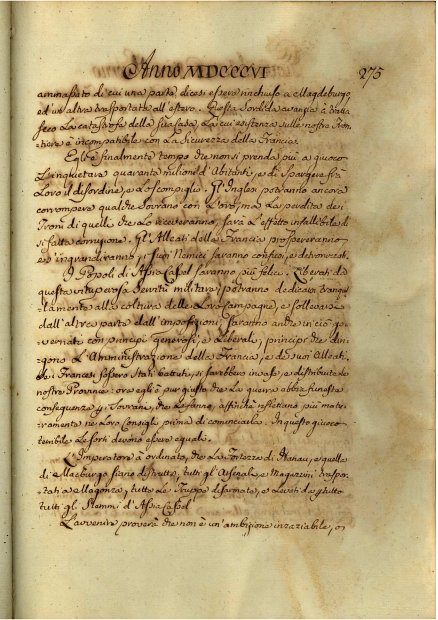 Anno MDCCCVI
275
ammassato di cui una parte dicesi essere rinchiuso a Magdeburgo,
ed un altra trasportata all'estero. Questa sordida avarizia à tratta
seco La catastrofe della sua casa, La cui esistenza sulle nostre Fron-
tiere è incompatibile con La Sicurezza della Francia.
Egli è finalmente tempo che non si prenda più a giuoco
L'inquietare quaranta milioni d'Abitanti, e di spargere frà
Loro il disordine, e Lo scompiglio. Gl'Inglesi potranno ancora
corrompere qualche Sovrano con L'oro, ma La perdita dei
Troni di quelli che Lo riceveranno, sarà L'effetto infallibile di
sifatta corruzione. Gl'Alleati della Francia prospereranno
e s'ingrandiranno; i Suoi Nemici saranno confusi, e detronizzati.
I Popoli di Assia Cassel saranno più felici. Liberati da
questa vituperosa Servitù militare, potranno dedicarsi tranquil-
lamente alla coltura delle Loro Campagne, e sollevati
dall'altra parte dall'imposizioni, saranno anche in ciò go-
vernati con principj generosi, e Liberali, principj che diri-
gono L'Amministrazione della Francia, e de' suoi Alleati.
Se i Francesi fossero stati battuti, si sarebbero invase, e distribuite le
nostre Provincie: ora egli è più giusto che La guerra abbia funeste
conseguenze pei Sovrani, che La fanno, affinchè riflettano più matu-
ramente ne Loro Consigli prima di cominciarla. In questo giuoco
terribile Le sorti devono essere equali.
L'Imperatore à ordinato, che La Fortezza di Hanau, e quella
di Marburgo siano distrutte, tutti gl'Arsenali e Magazzini traspor-
tati a Magonza, tutte Le Truppe disarmate, e Levati da per tutto
tutti gli Stemmi d'Assia Cassel
L'avvenire proverà che non è un'ambizione insaziabile, o